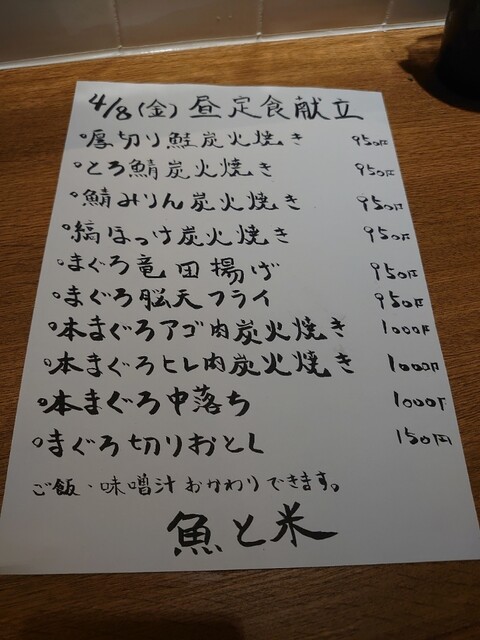 4/8(金) 昼定食献立
°厚切り鮭炭火焼き 950円
°とろ鯖炭火焼き 950円
°鯖みりん炭火焼き 950円
°縞ほっけ炭火焼き 950円
°まぐろ竜田揚げ 950円
°まぐろ脳天フライ 950円
°本まぐろアゴ肉炭火焼き 1000円
°本まぐろヒレ肉炭火焼き 1000円
°本まぐろ中落ち 1000円
°まぐろ切りおとし 150円
ご飯・味噌汁おかわりできます。
魚と米